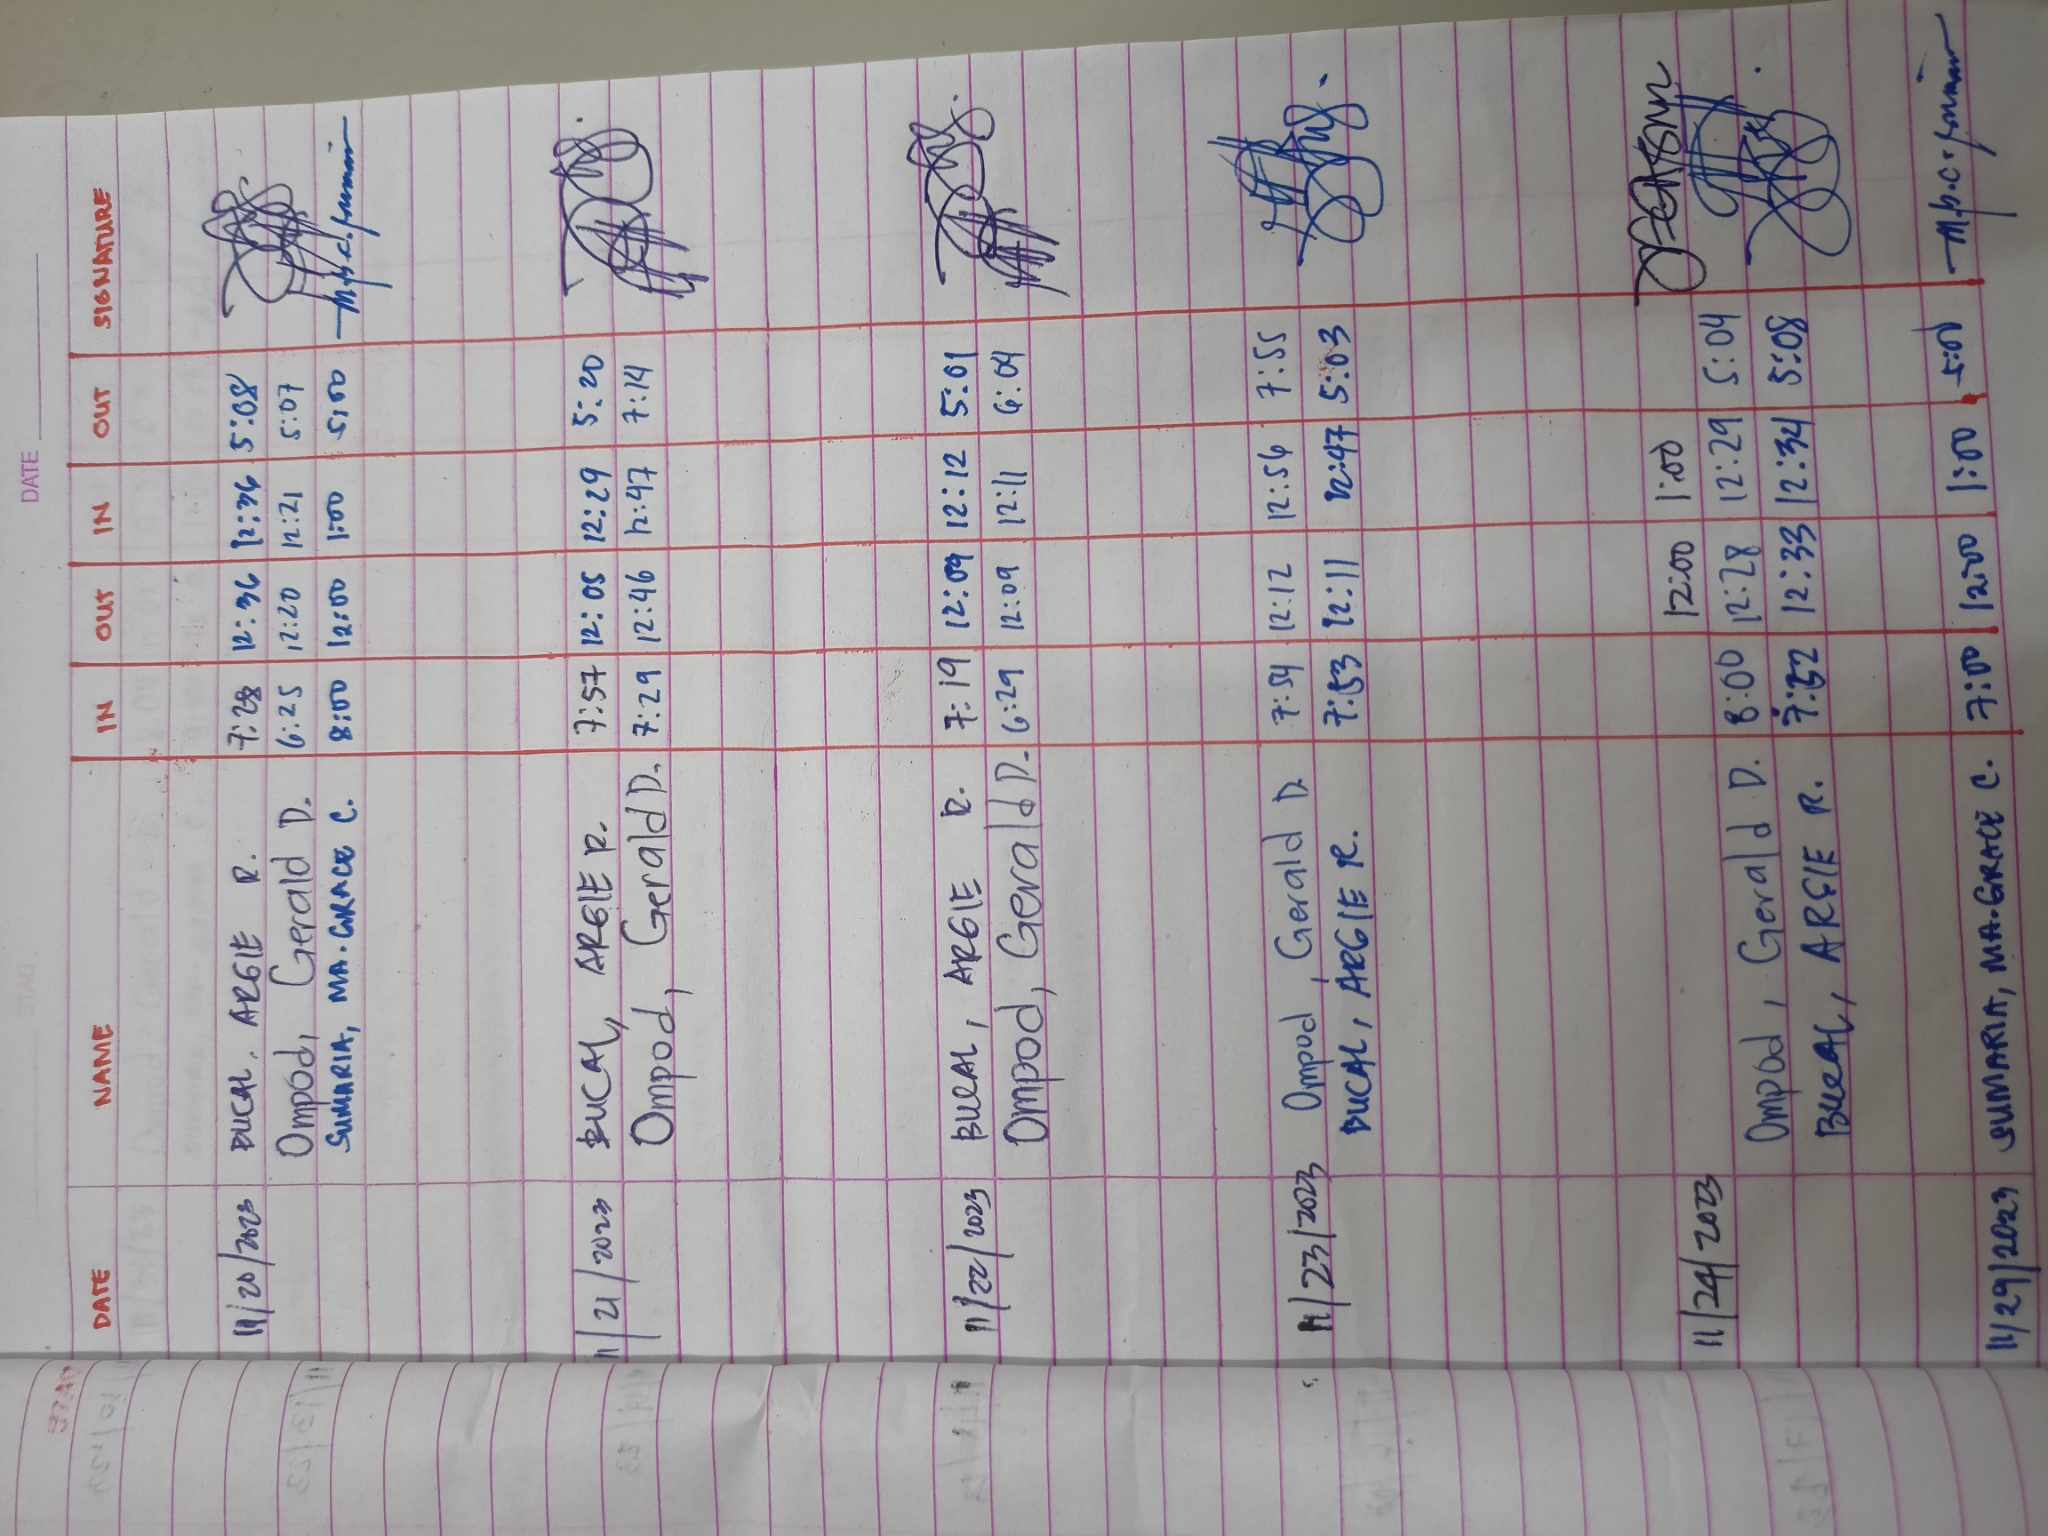 DATE
DATE NAME IN OUT IN OUT SIGNATURE
11/20/2023 DUCAL, ARGIE R. 7:28 12:36 12:36 5:08
Ompod, Gerald D. 6:25 12:20 12:21 5:07
SUMARIA, MA. GRACE C. 8:00 12:00 1:00 5:00
11/21/2023 DUCAL, ARGIE R. 7:57 12:05 12:29 5:20
Ompod, Gerald D. 7:29 12:46 12:47 7:14
11/22/2023 DUCAL, ARGIE R. 7:19 12:09 12:12 5:01
Ompod, Gerald D. 6:29 12:09 12:11 6:04
11/23/2023 Ompod, Gerald D. 7:54 12:12 12:56 7:55
DUCAL, ARGIE R. 7:53 12:11 12:47 5:03
12:00 1:00
11/24/2023 Ompod, Gerald D. 8:00 12:28 12:29 5:04
DUCAL, ARGIE R. 12:33 12:34 5:08
11/29/2023 SUMARIA, MA. GRACE C. 7:00 12:00 1:00 5:01